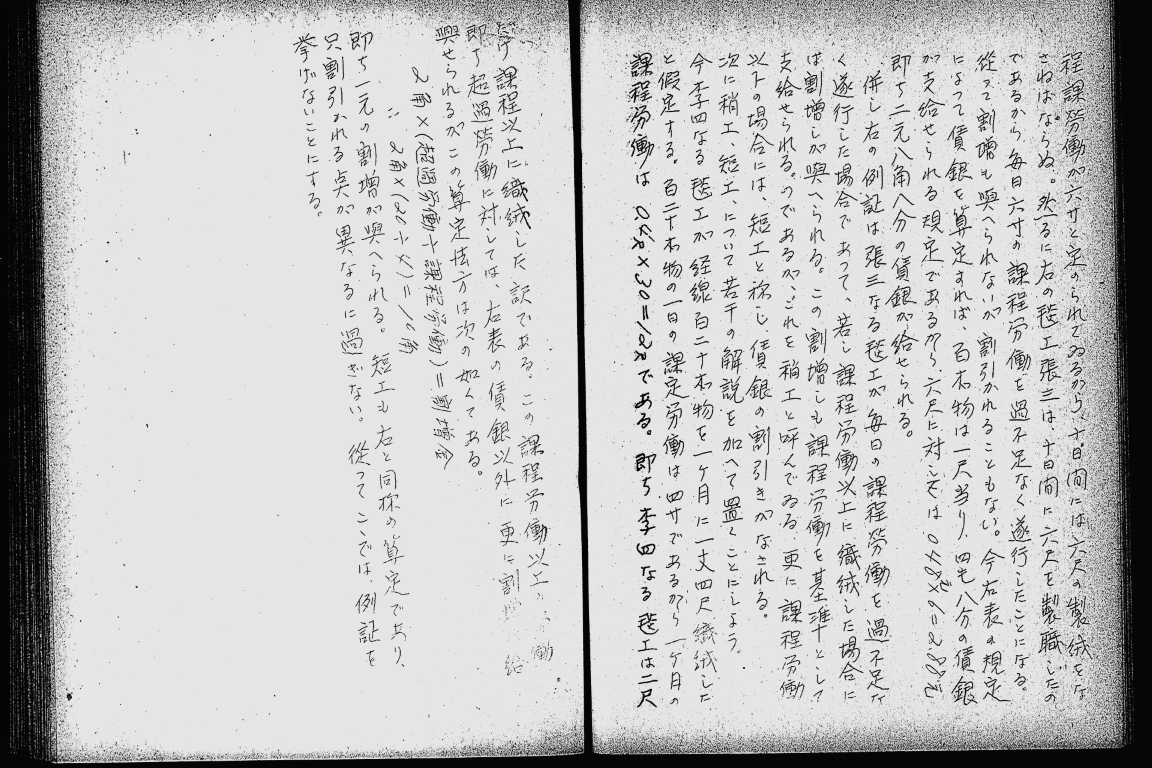 程課労働が六寸と定められてゐるから、十日間には六尺の製絨をな
さねばならぬ。然るに右の毯工張三は十日間に六尺を製職したの
であるから毎日六寸の課程労働を過不足なく遂行したことになる。
従って割増も與へられないが割引かれることもない。今右表の規定
によって債銀を算定すれば、百本物は一尺当り、四毛八分の債銀
が支給せられる規定であるから、六尺に対しては 0.48元×6=2.88元
即ち二元八角八分の債銀が給せられる。
併し右の例証は張三なる毯工が毎日の課程労働を過不足な
く遂行した場合であって、若し課程労働以上に織絨した場合に
は割増しが與へられる。この割増しも課程労働を基準として
支給せられる。のであるが、これを稍工と呼んでゐる。更に課程労働
以下の場合には、短工と称し債銀の割引きがなされる。
次に稍工、短工、について若干の解説を加へて置くことにしよう。
今李四なる毯工が経線百二十本物を一ヶ月に一丈四尺織絨した
と假定する。百二十本物の一日の課定労働は四寸であるから一ヶ月の
課程労働は 0.4尺×30=12尺である。即ち李四なる毯工は二尺
だけ課程以上に織絨した訳である。この課程労働以上 労働
即ち超過労働に対しては、右表の債銀以外に更に割増 給
與せられるがこの算定法方は次の如くである。
2角×(超過労働÷課程労働)=割増金
∴ 2角×(20÷2)=16角
即ち一元の割増が與へられる。短工も右と同称の算定であり、
只割引かれる点が異なるに過ぎない。従ってこゝでは、例証を
挙げないことにする。